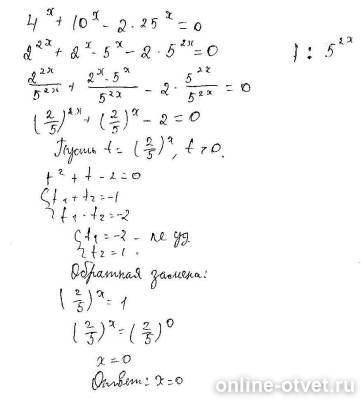 4^x + 10^x - 2·25^x = 0
2^{2x} + 2^x·5^x - 2·5^{2x} = 0 | : 5^{2x}
2^{2x}/5^{2x} + 2^x·5^x/5^{2x} - 2·5^{2x}/5^{2x} = 0
(2/5)^{2x} + (2/5)^x - 2 = 0
Пусть t = (2/5)^x, t > 0.
t² + t - 2 = 0
{t₁ + t₂ = -1
{t₁ · t₂ = -2
{t₁ = -2 - не уд
{t₂ = 1
Обратная замена:
(2/5)^x = 1
(2/5)^x = (2/5)^0
x = 0
Ответ: x = 0
online-otvet.ru